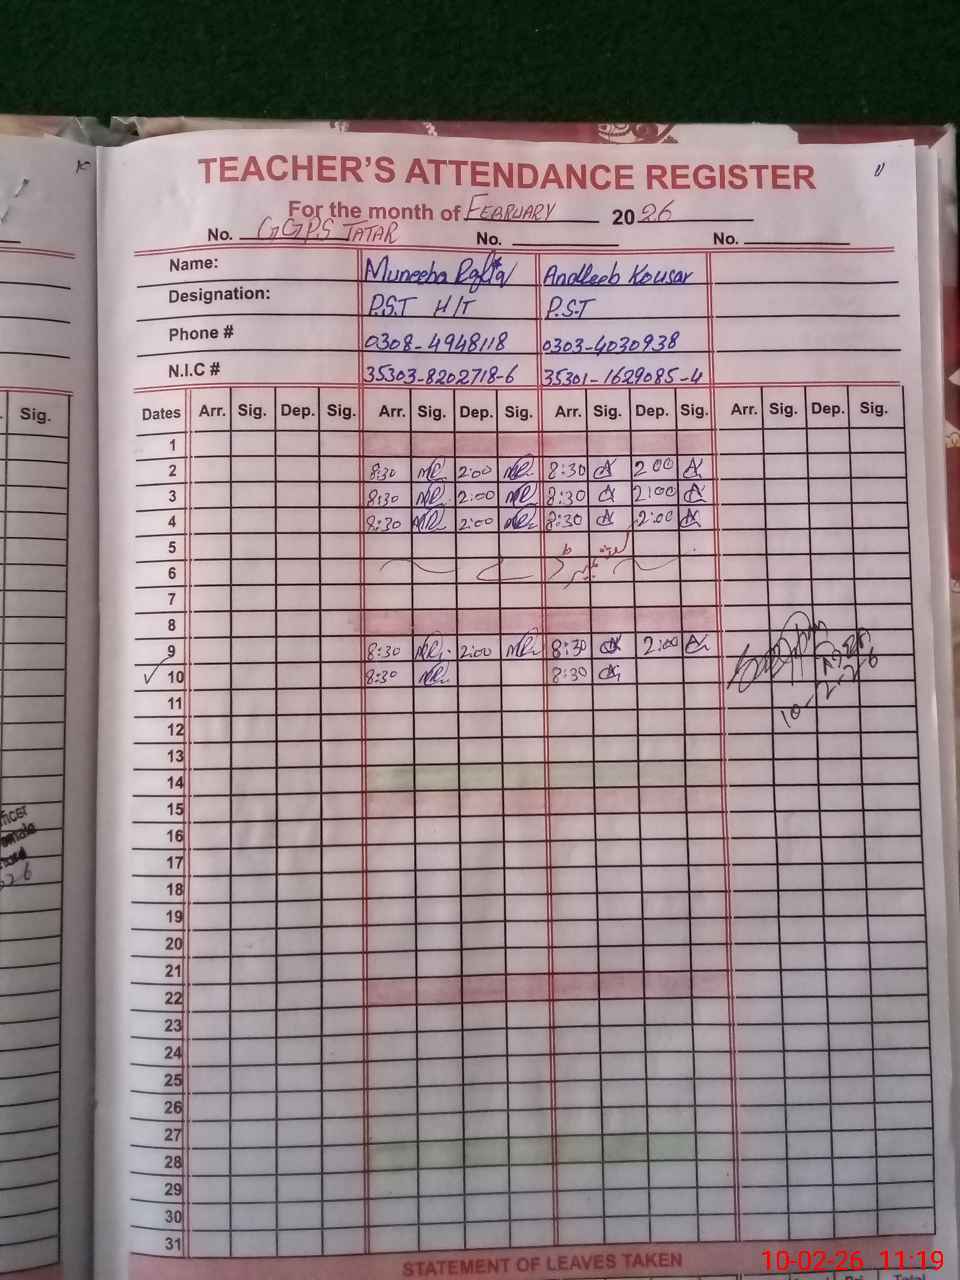 TEACHER'S ATTENDANCE REGISTER
For the month of FEBRUARY 2026
No. GGPS TATAR No. No.
Name: Muneeba Andleeb Kousar
Designation: P.S.T H/T P.S.T
Phone # 0308-4948118 0303-4030938
N.I.C # 35303-8202718-6 35301-1629085-4
Sig. Dates Arr. Sig. Dep. Sig. Arr. Sig. Dep. Sig. Arr. Sig. Dep. Sig. Arr. Sig. Dep. Sig.
1
2 8:30 2:00 8:30 2 00
3 8:30 2:00 8:30 2:00
4 8:30 2:00 8:30 2:00
5
6
7
8
9 8:30 2:00 8:30 2:00
10 8:30 8:30
10-2-26
11
12
13
14
15
16
17
18
19
20
21
22
23
24
25
26
27
28
29
30
31
STATEMENT OF LEAVES TAKEN
10-02-26 11:19